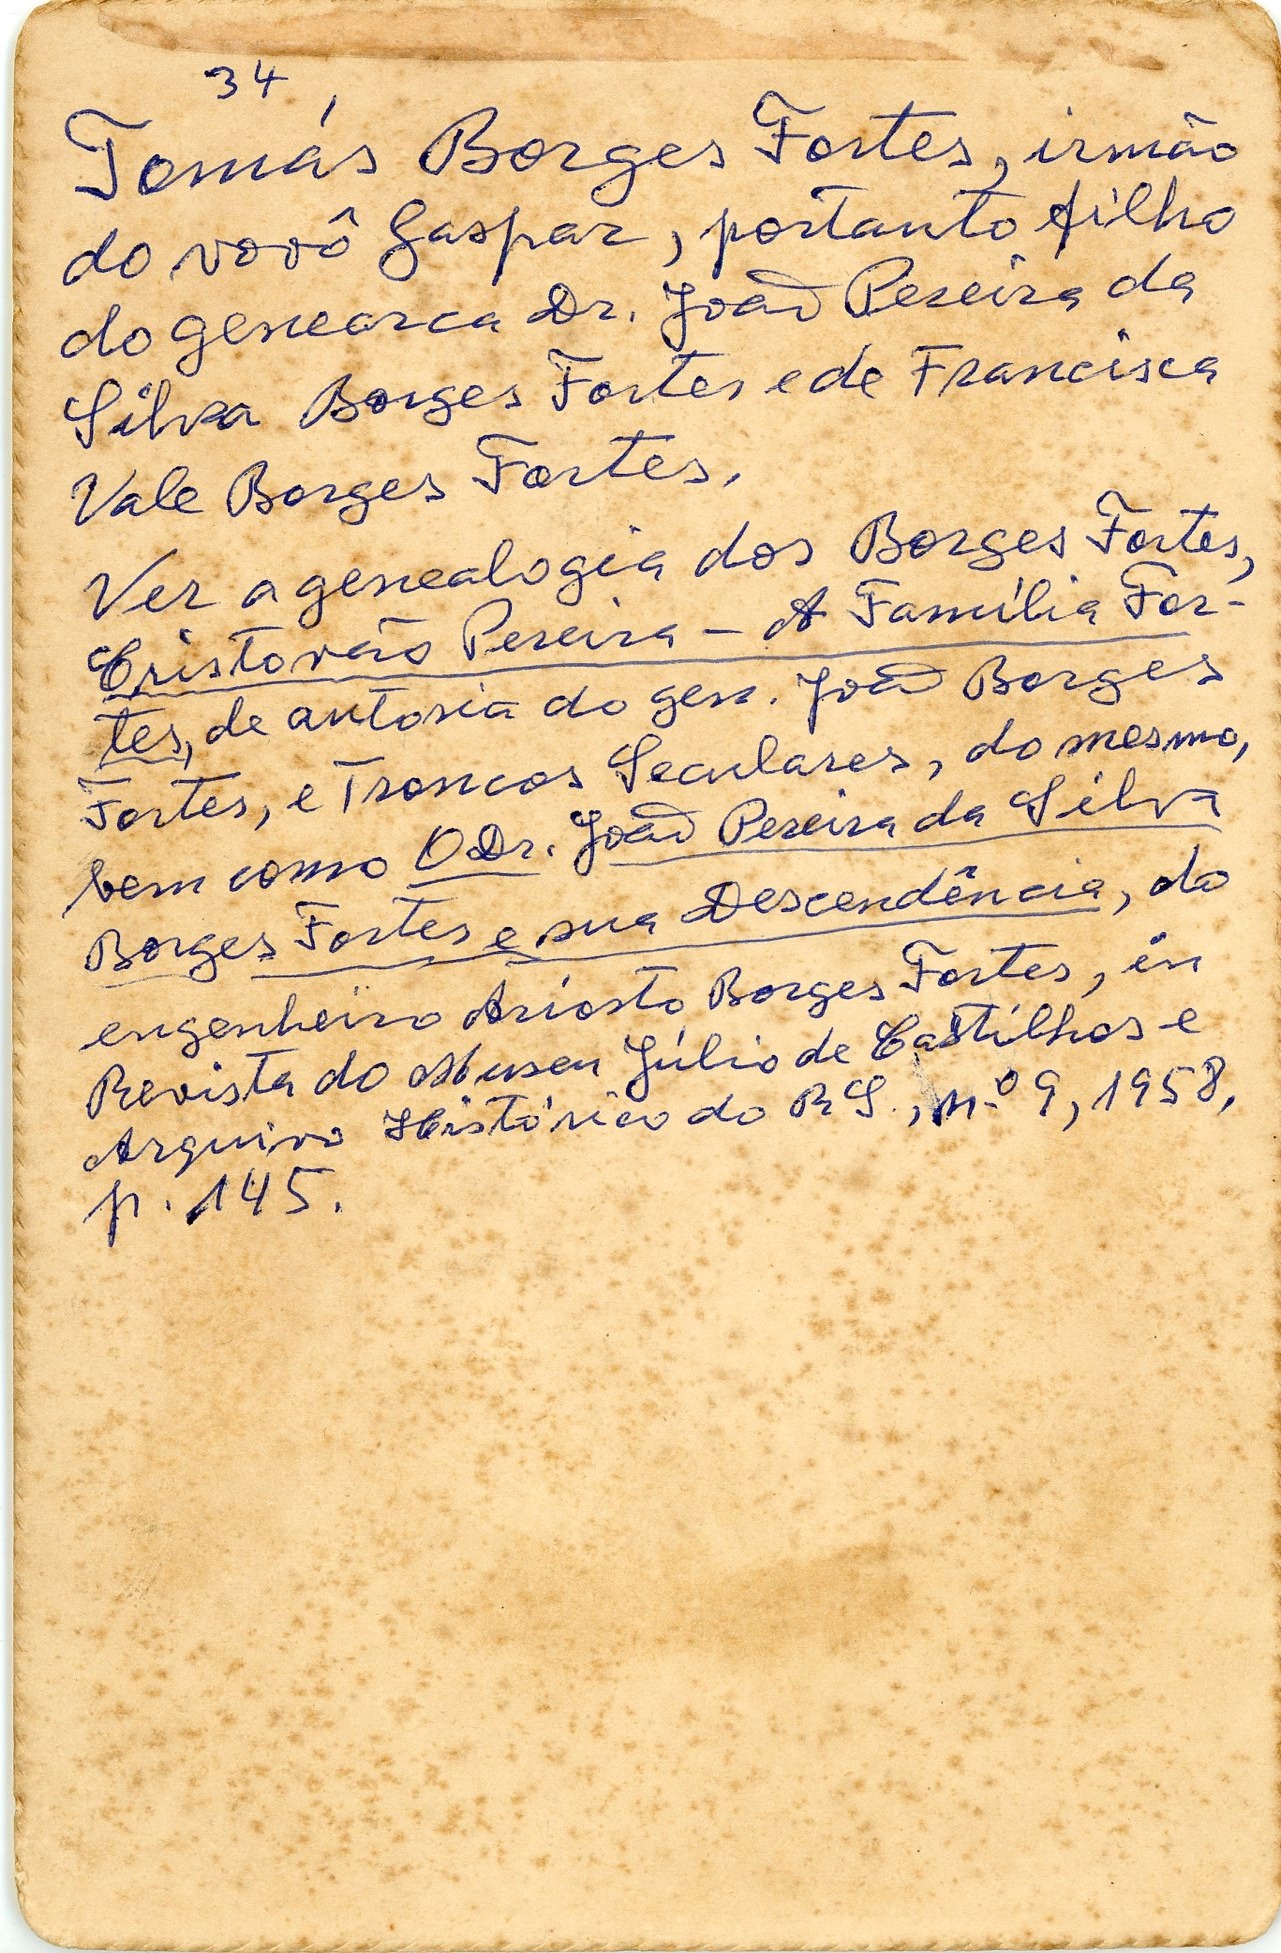 34
Tomás Borges Fortes, irmão
do vovô Gaspar, portanto filho
do genearca Dr. João Pereira da
Silva Borges Fortes e de Francisca
Vale Borges Fortes.
Ver a genealogia dos Borges Fortes,
Cristovão Pereira - A Família For-
tes, de autoria do gen. João Borges
Fortes, e Troncos Seculares, do mesmo,
bem como O Dr. João Pereira da Silva
Borges Fortes e sua Descendência, do
engenheiro Ariosto Borges Fortes, in
Revista do Museu Júlio de Castilhos e
Arquivo Histórico do RS., n.º 9, 1958,
p. 145.